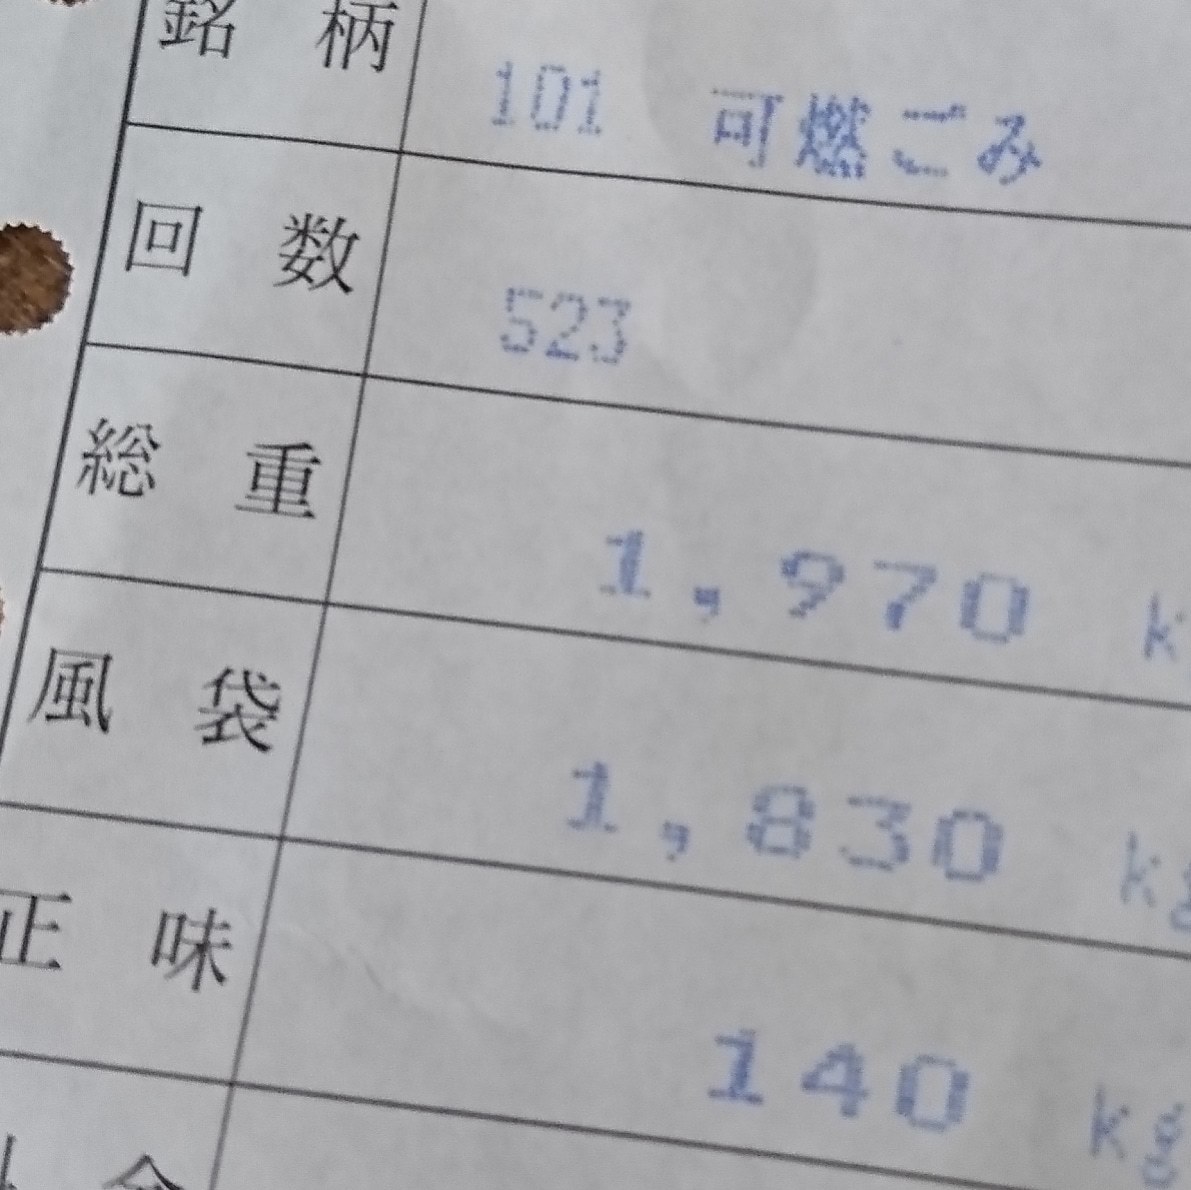 銘柄 101 可燃ごみ
回数 523
総重 1,970 k
風袋 1,830 kg
正味 140 kg